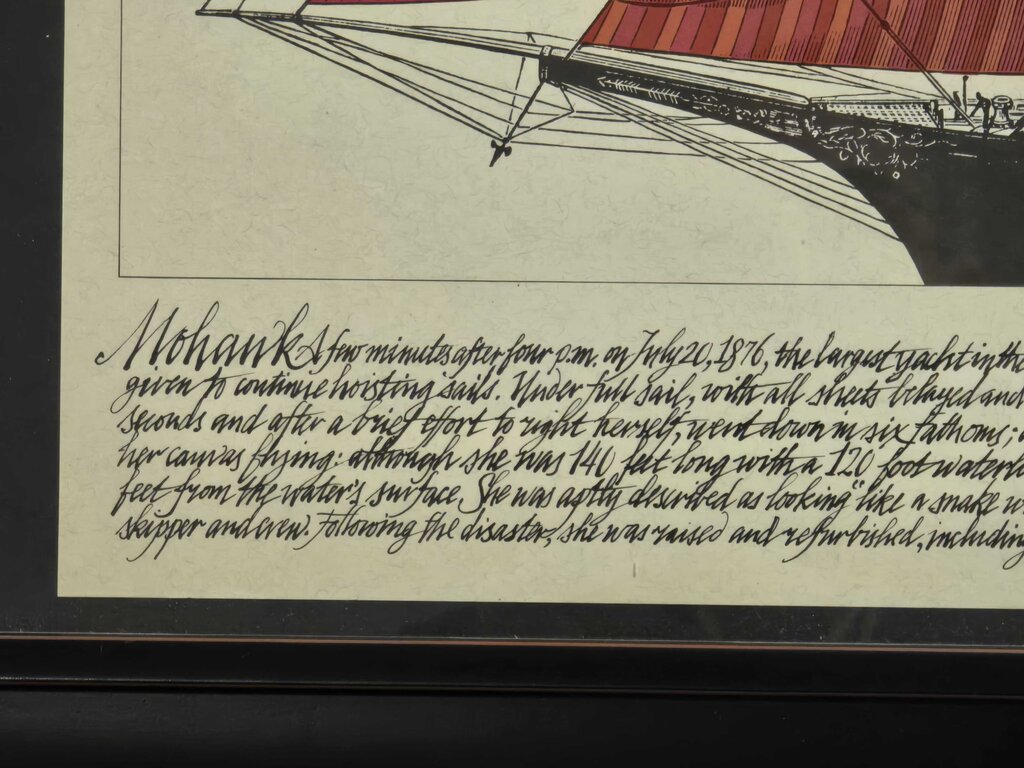 Mohawk A few minutes after four p.m. on July 20, 1876, the largest yacht in the
given to continue hoisting sails. Under full sail, with all sheets belayed and
seconds and after a brief effort to right herself, went down in six fathoms;
her canvas flying: although she was 140 feet long with a 120 foot waterl
feet from the water's surface. She was aptly described as looking "like a snake w
skipper and crew. Following the disaster, she was raised and refurbished, including